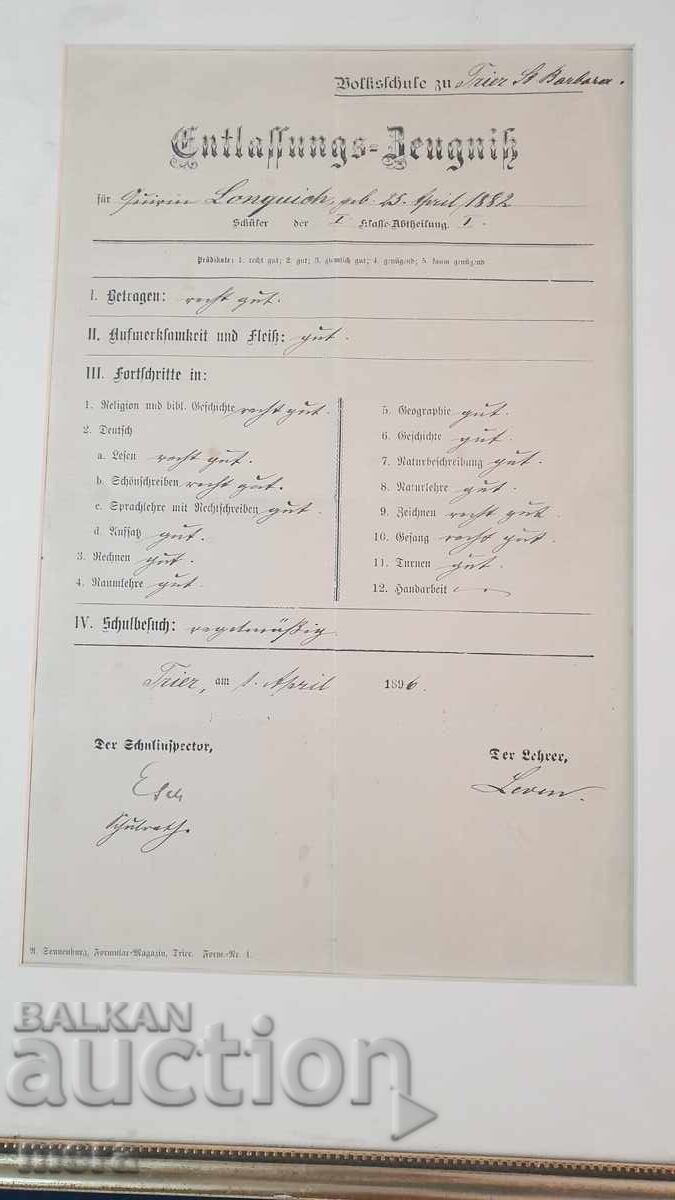 Volksschule zu Trier St Barbara.
Entlassungs-Zeugniß
für Quirin Longuich, geb. 25. April, 1882
Schüler der I Klasse-Abtheilung. I.
Prädikate: 1. recht gut; 2. gut; 3. ziemlich gut; 4. genügend; 5. kaum genügend
I. Betragen: recht gut.
II. Aufmerksamkeit und Fleiß: gut.
III. Fortschritte in:
1. Religion und bibl. Geschichte recht gut.
2. Deutsch
a. Lesen recht gut.
b. Schönschreiben recht gut.
c. Sprachlehre mit Rechtschreiben gut.
d. Aufsatz gut.
3. Rechnen gut.
4. Raumlehre gut.
5. Geographie gut.
6. Geschichte gut.
7. Naturbeschreibung gut.
8. Naturlehre gut.
9. Zeichnen recht gut.
10. Gesang recht gut.
11. Turnen gut.
12. Handarbeit
IV. Schulbesuch: regelmäßig.
Trier, am 1. April 1896.
Der Schulinspector,
Esch
Schulrath.
Der Lehrer,
Leven.
R. Sennenburg, Formular-Magazin, Trier. Form.-Nr. 1.
BALKAN
auction
mera